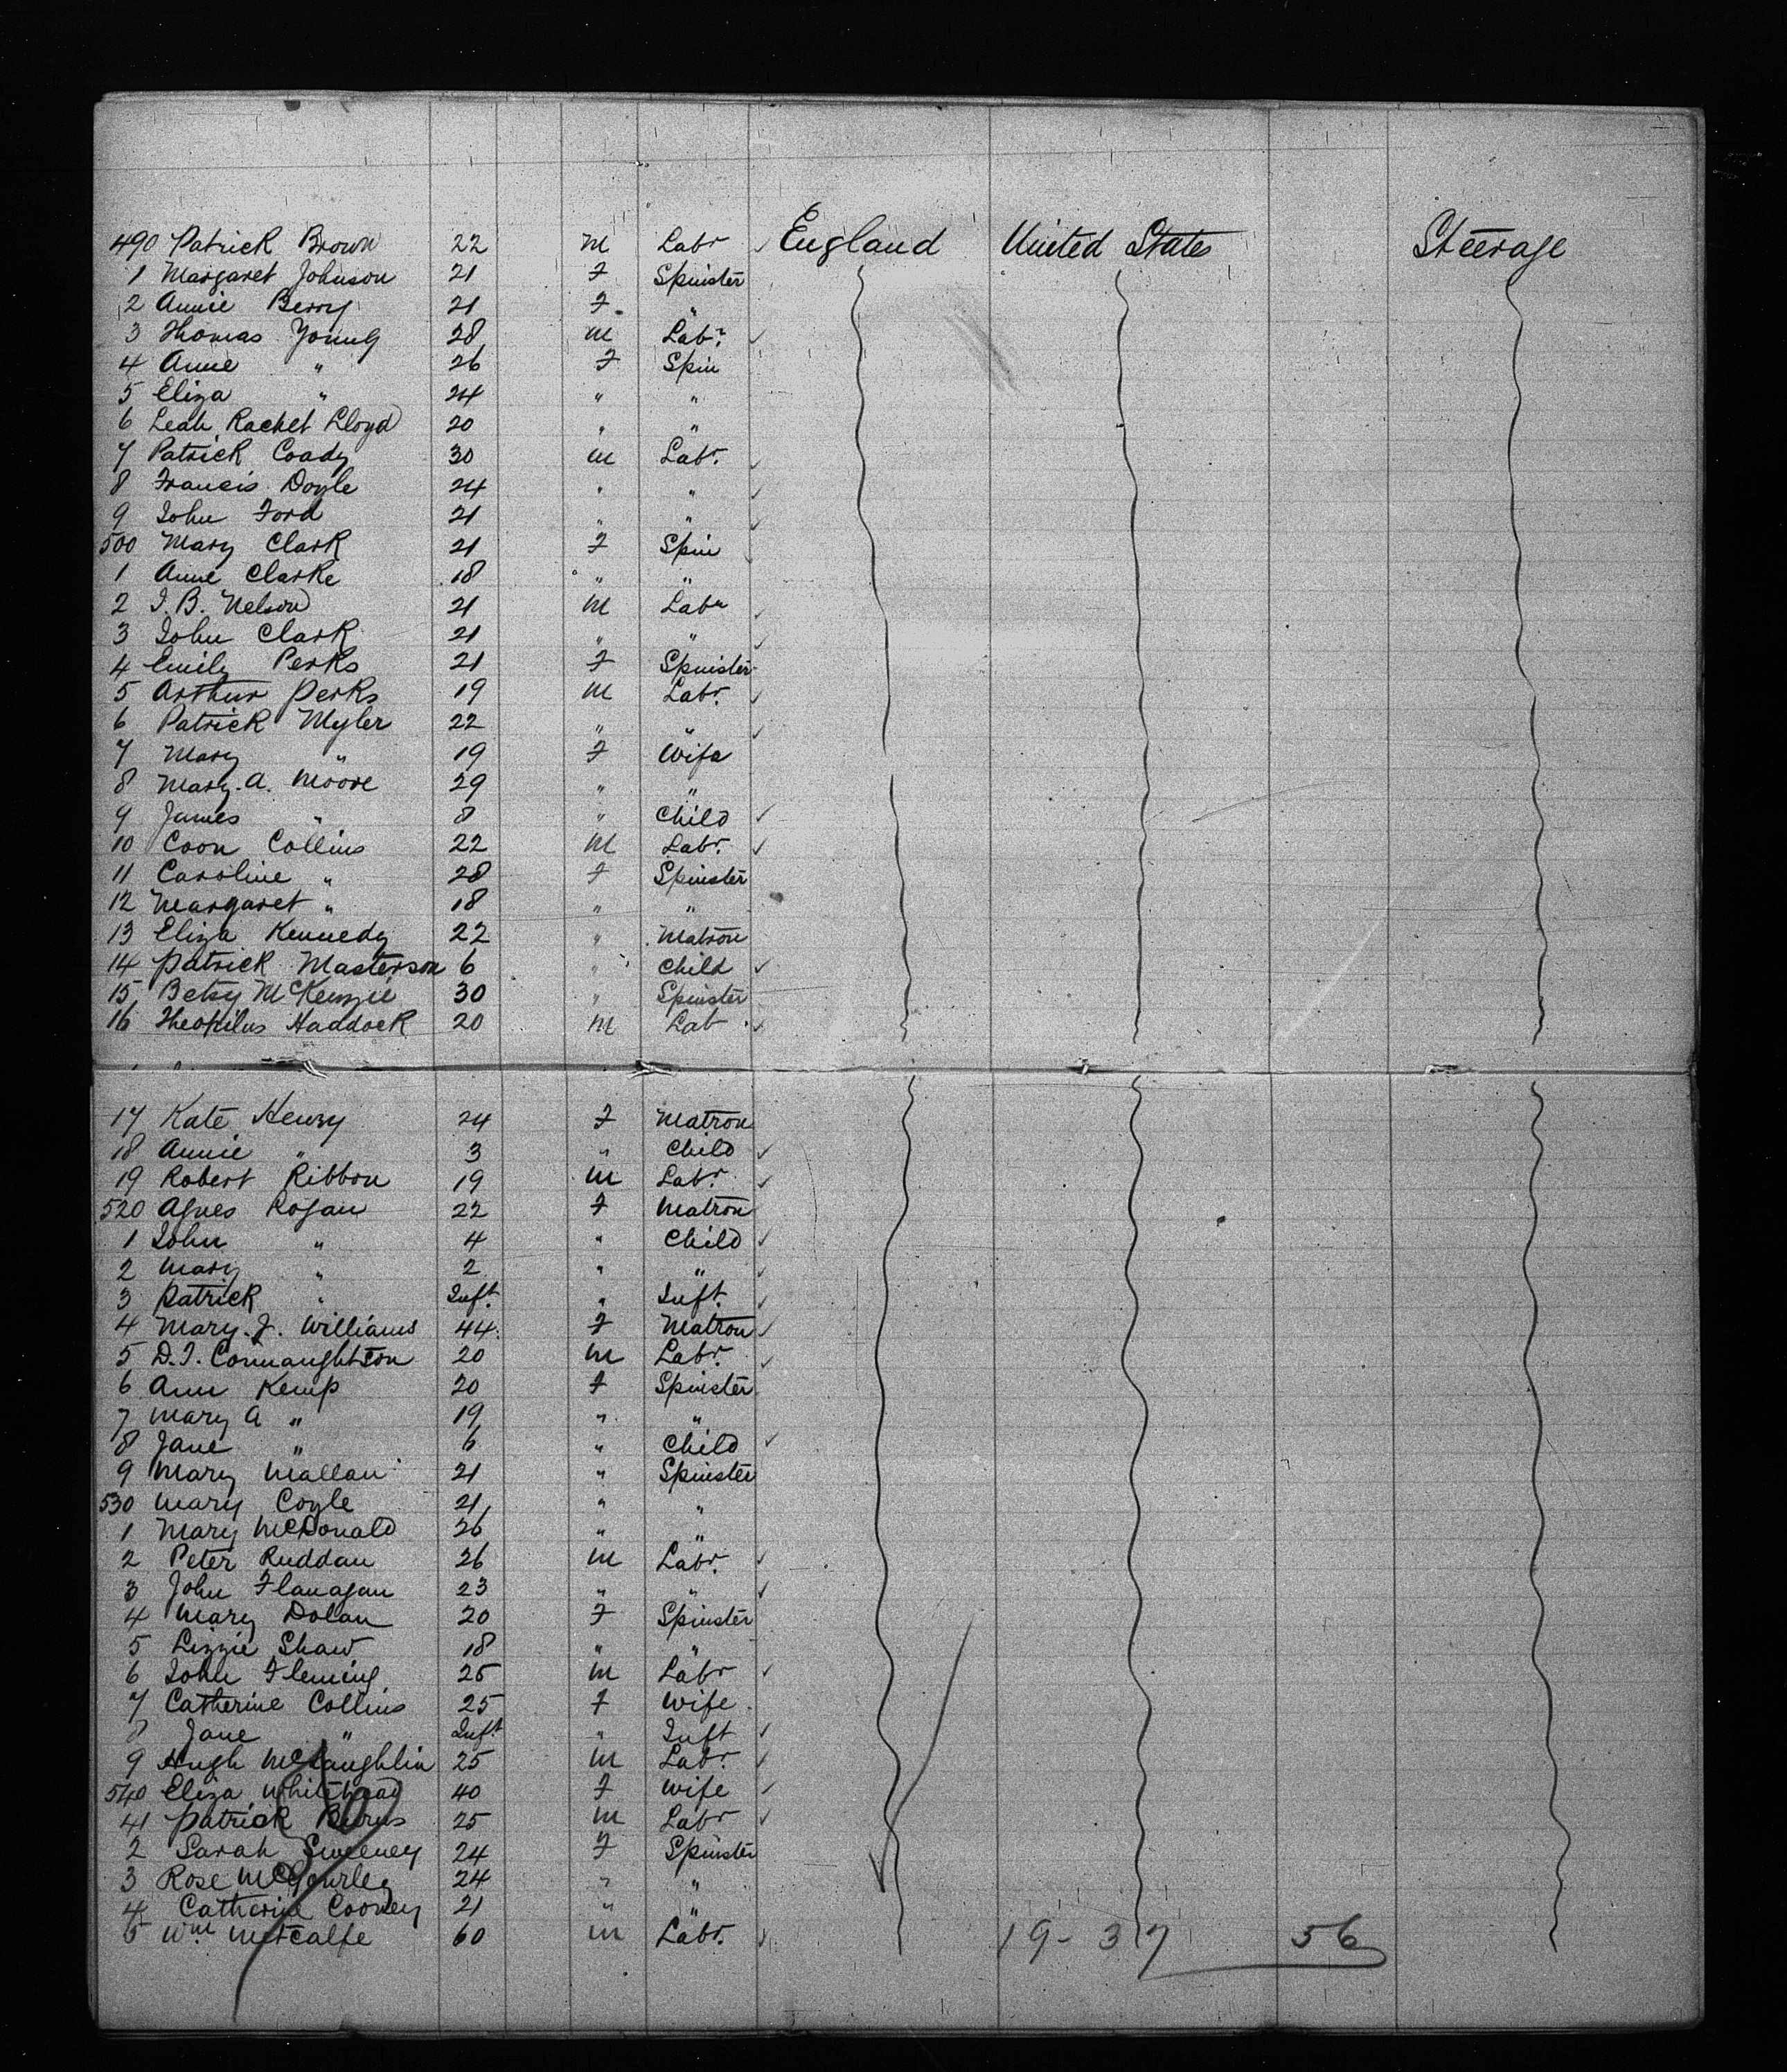 490 Patrick Brown 22 M Labr ✓ England United States Steerage
1 Margaret Johnson 21 F Spinster
2 Annie Berry 21 F "
3 Thomas Young 28 M Labr ✓
4 Anne " 26 F Spin
5 Eliza " 24 " "
6 Leah Rachel Lloyd 20 " "
7 Patrick Coady 30 M Labr. ✓
8 Francis Doyle 24 " " ✓
9 John Ford 21 " " ✓
500 Mary Clark 21 F Spin
1 Anne Clarke 18 " "
2 J. B. Nelson 21 M Labr ✓
3 John Clark 21 " " ✓
4 Emily Perks 21 F Spinster
5 Arthur Perks 19 M Labr. ✓
6 Patrick Myler 22 " " ✓
7 Mary " 19 F Wife
8 Mary. A. Moore 29 " "
9 James " 8 " Child ✓
10 Coon Collins 22 M Labr. ✓
11 Caroline " 28 F Spinster
12 Margaret " 18 " "
13 Eliza Kennedy 22 " Matron
14 Patrick Masterson 6 " Child ✓
15 Betsy McKenzie 30 " Spinster
16 Theophilus Haddock 20 M Lab ✓
17 Kate Henry 24 F Matron
18 Annie " 3 " Child ✓
19 Robert Ribbon 19 M Labr. ✓
520 Agnes Rogan 22 F Matron
1 John " 4 " Child ✓
2 Mary " 2 " " ✓
3 Patrick " Inft. " Inft. ✓
4 Mary. J. Williams 44 F Matron ✓
5 D. J. Connaughton 20 M Labr. ✓
6 Ann Kemp 20 F Spinster
7 Mary A " 19 " "
8 Jane " 6 " Child ✓
9 Mary Mallan 21 " Spinster
530 Mary Coyle 21 " "
1 Mary McDonald 26 " "
2 Peter Ruddan 26 M Labr. ✓
3 John Flanagan 23 " " ✓
4 Mary Dolan 20 F Spinster
5 Lizzie Shaw 18 " "
6 John Fleming 25 M Labr ✓
7 Catherine Collins 25 F Wife
8 Jane " Inft " Inft ✓
9 Hugh McLaughlin 25 M Labr. ✓
540 Eliza Whitehead 40 F Wife ✓
41 Patrick Burns 25 M Labr ✓
2 Sarah Sweeney 24 F Spinster
3 Rose McGourley 24 " "
4 Catherine Cooney 21 " "
5 Wm Metcalfe 60 M Labr. ✓
19 - 37 56